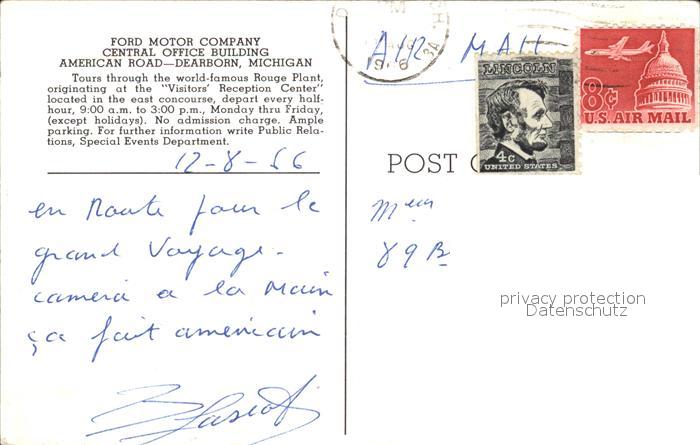 FORD MOTOR COMPANY
CENTRAL OFFICE BUILDING
AMERICAN ROAD—DEARBORN, MICHIGAN
Tours through the world-famous Rouge Plant,
originating at the "Visitors' Reception Center"
located in the east concourse, depart every half-
hour, 9:00 a.m. to 3:00 p.m., Monday thru Friday,
(except holidays). No admission charge. Ample
parking. For further information write Public Rela-
tions, Special Events Department.
12-8-66
en Route pour le
grand Voyage -
camera a la Main
ça fait americain
AIR MAIL
LINCOLN
4c
UNITED STATES
8c
U.S. AIR MAIL
POST
Meur
89 B
privacy protection
Datenschutz